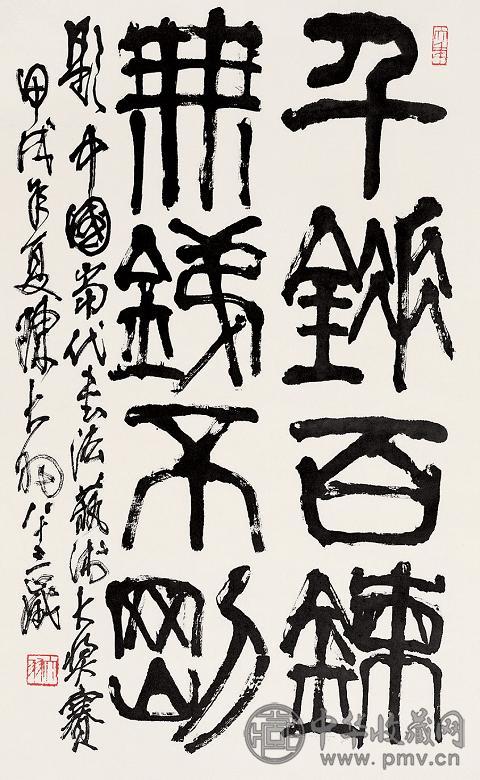 千錘百鍊
無銕不剛
中國當代書法藝術大奬賽
甲戌年夏陳大羽八十三歲
中华收藏网
www.pmv.cn